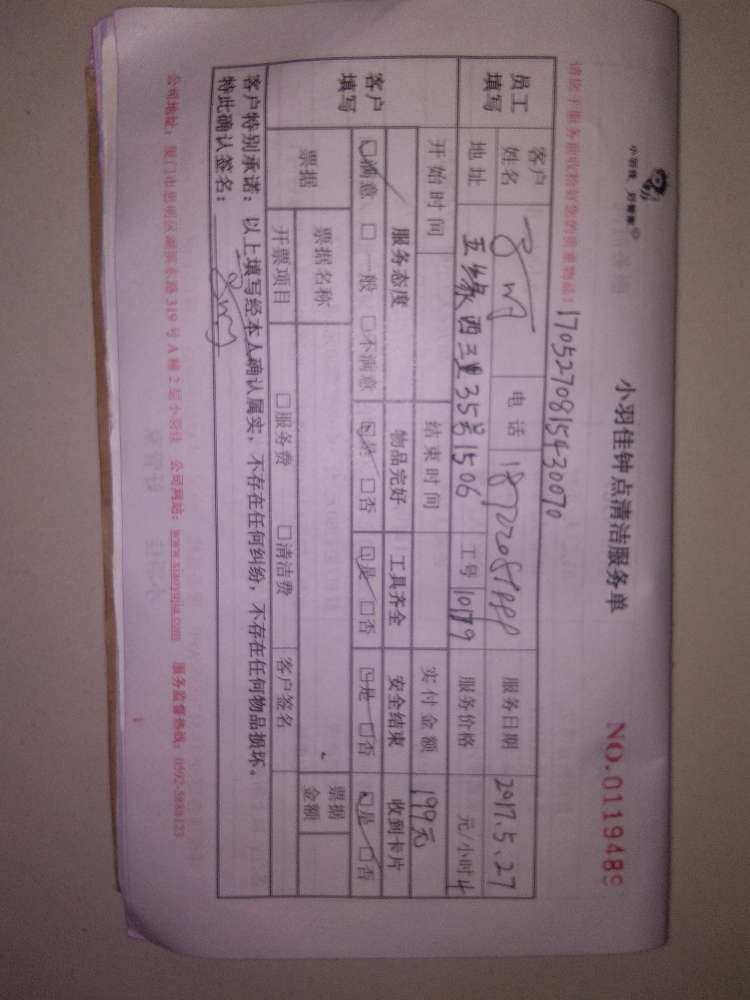 小羽佳 好管家
小羽佳钟点清洁服务单
NO.0119489
请您于服务前收检好您的贵重物品!
1705270815430070
员工填写 客户姓名 电话 服务日期 2017.5.27
地址 五缘西三里35号1506 工号 10179 服务价格 元/小时 4
客户填写 开始时间 结束时间 实付金额 199元
服务态度 物品完好 工具齐全 安全结束 收到卡片
☑满意 □一般 □不满意 ☑是 □否 ☑是 □否 ☑是 □否 ☑是 □否
票据 票据名称 票据金额
开票项目 □服务费 □清洁费 客户签名
客户特别承诺:以上填写经本人确认属实,不存在任何纠纷,不存在任何物品损坏。
特此确认签名:
公司地址:厦门市思明区湖滨东路319号A幢2层小羽佳 公司网站:www.xiaoyujia.com 服务监督热线:0592-5988123
1